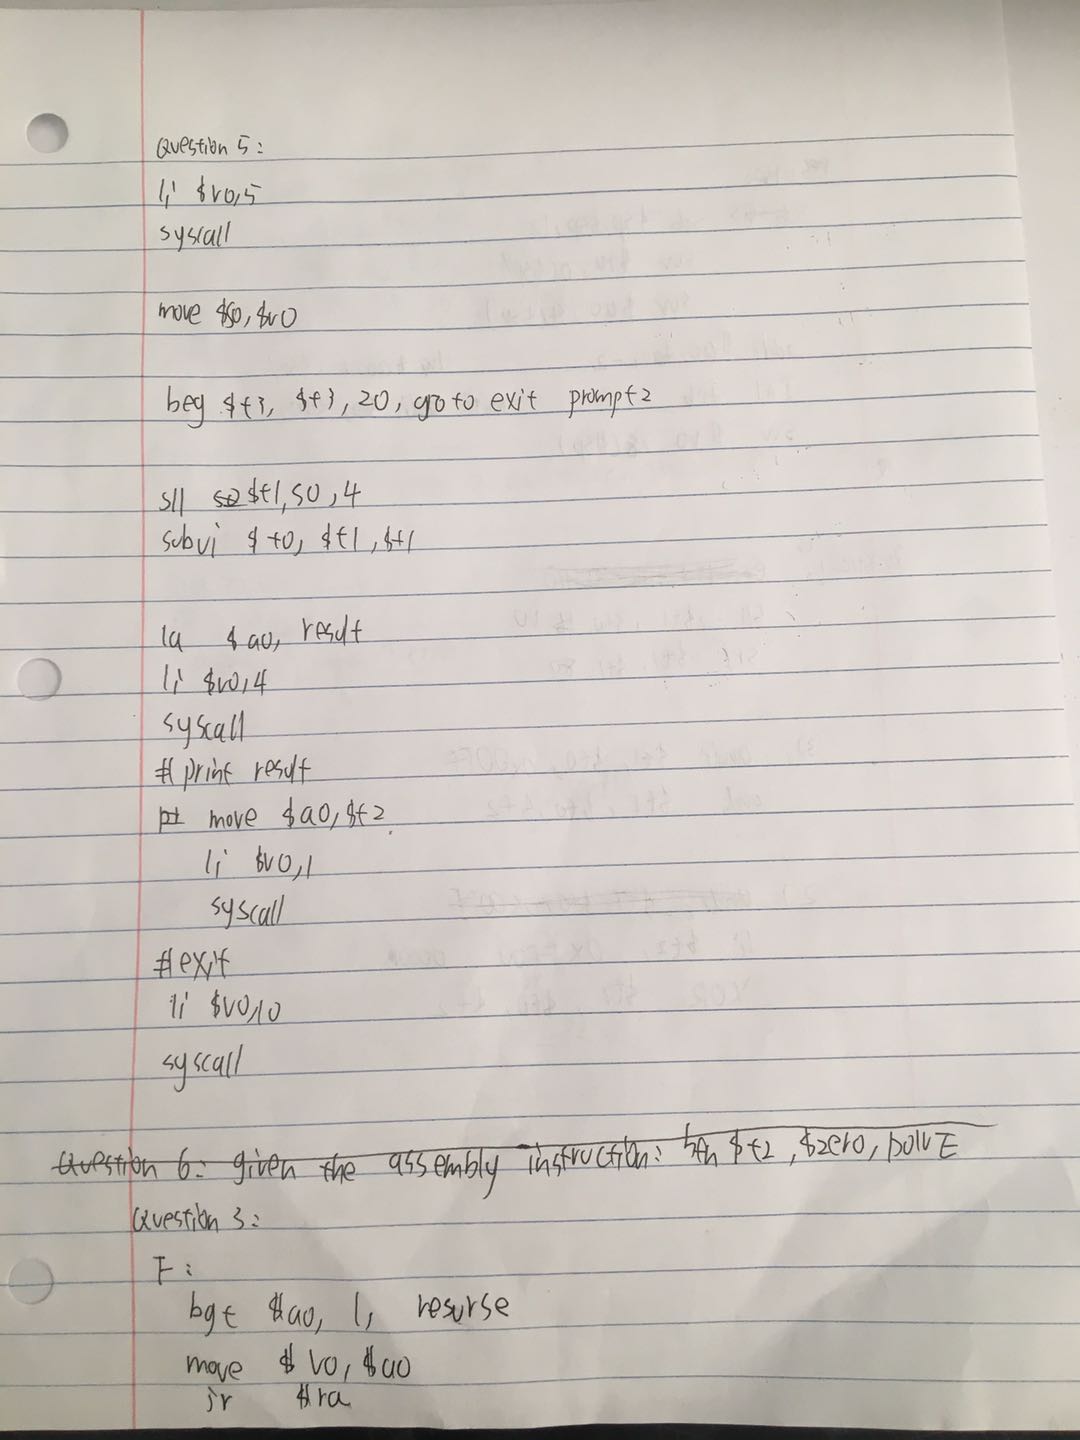 Question 5:
li $v0,5
syscall
move $s0,$v0
beg $t3, $t3, 20, go to exit prompt2
sll $t1, s0, 4
subui $t0, $t1, $t1
la $a0, result
li $v0,4
syscall
# print result
move $a0,$t2
li $v0,1
syscall
#exit
li $v0,10
syscall
Question 6: given the assembly instruction: $t2, $zero,
Question 3:
F:
bgt $a0, 1, resurse
move $v0, $a0
jr $ra